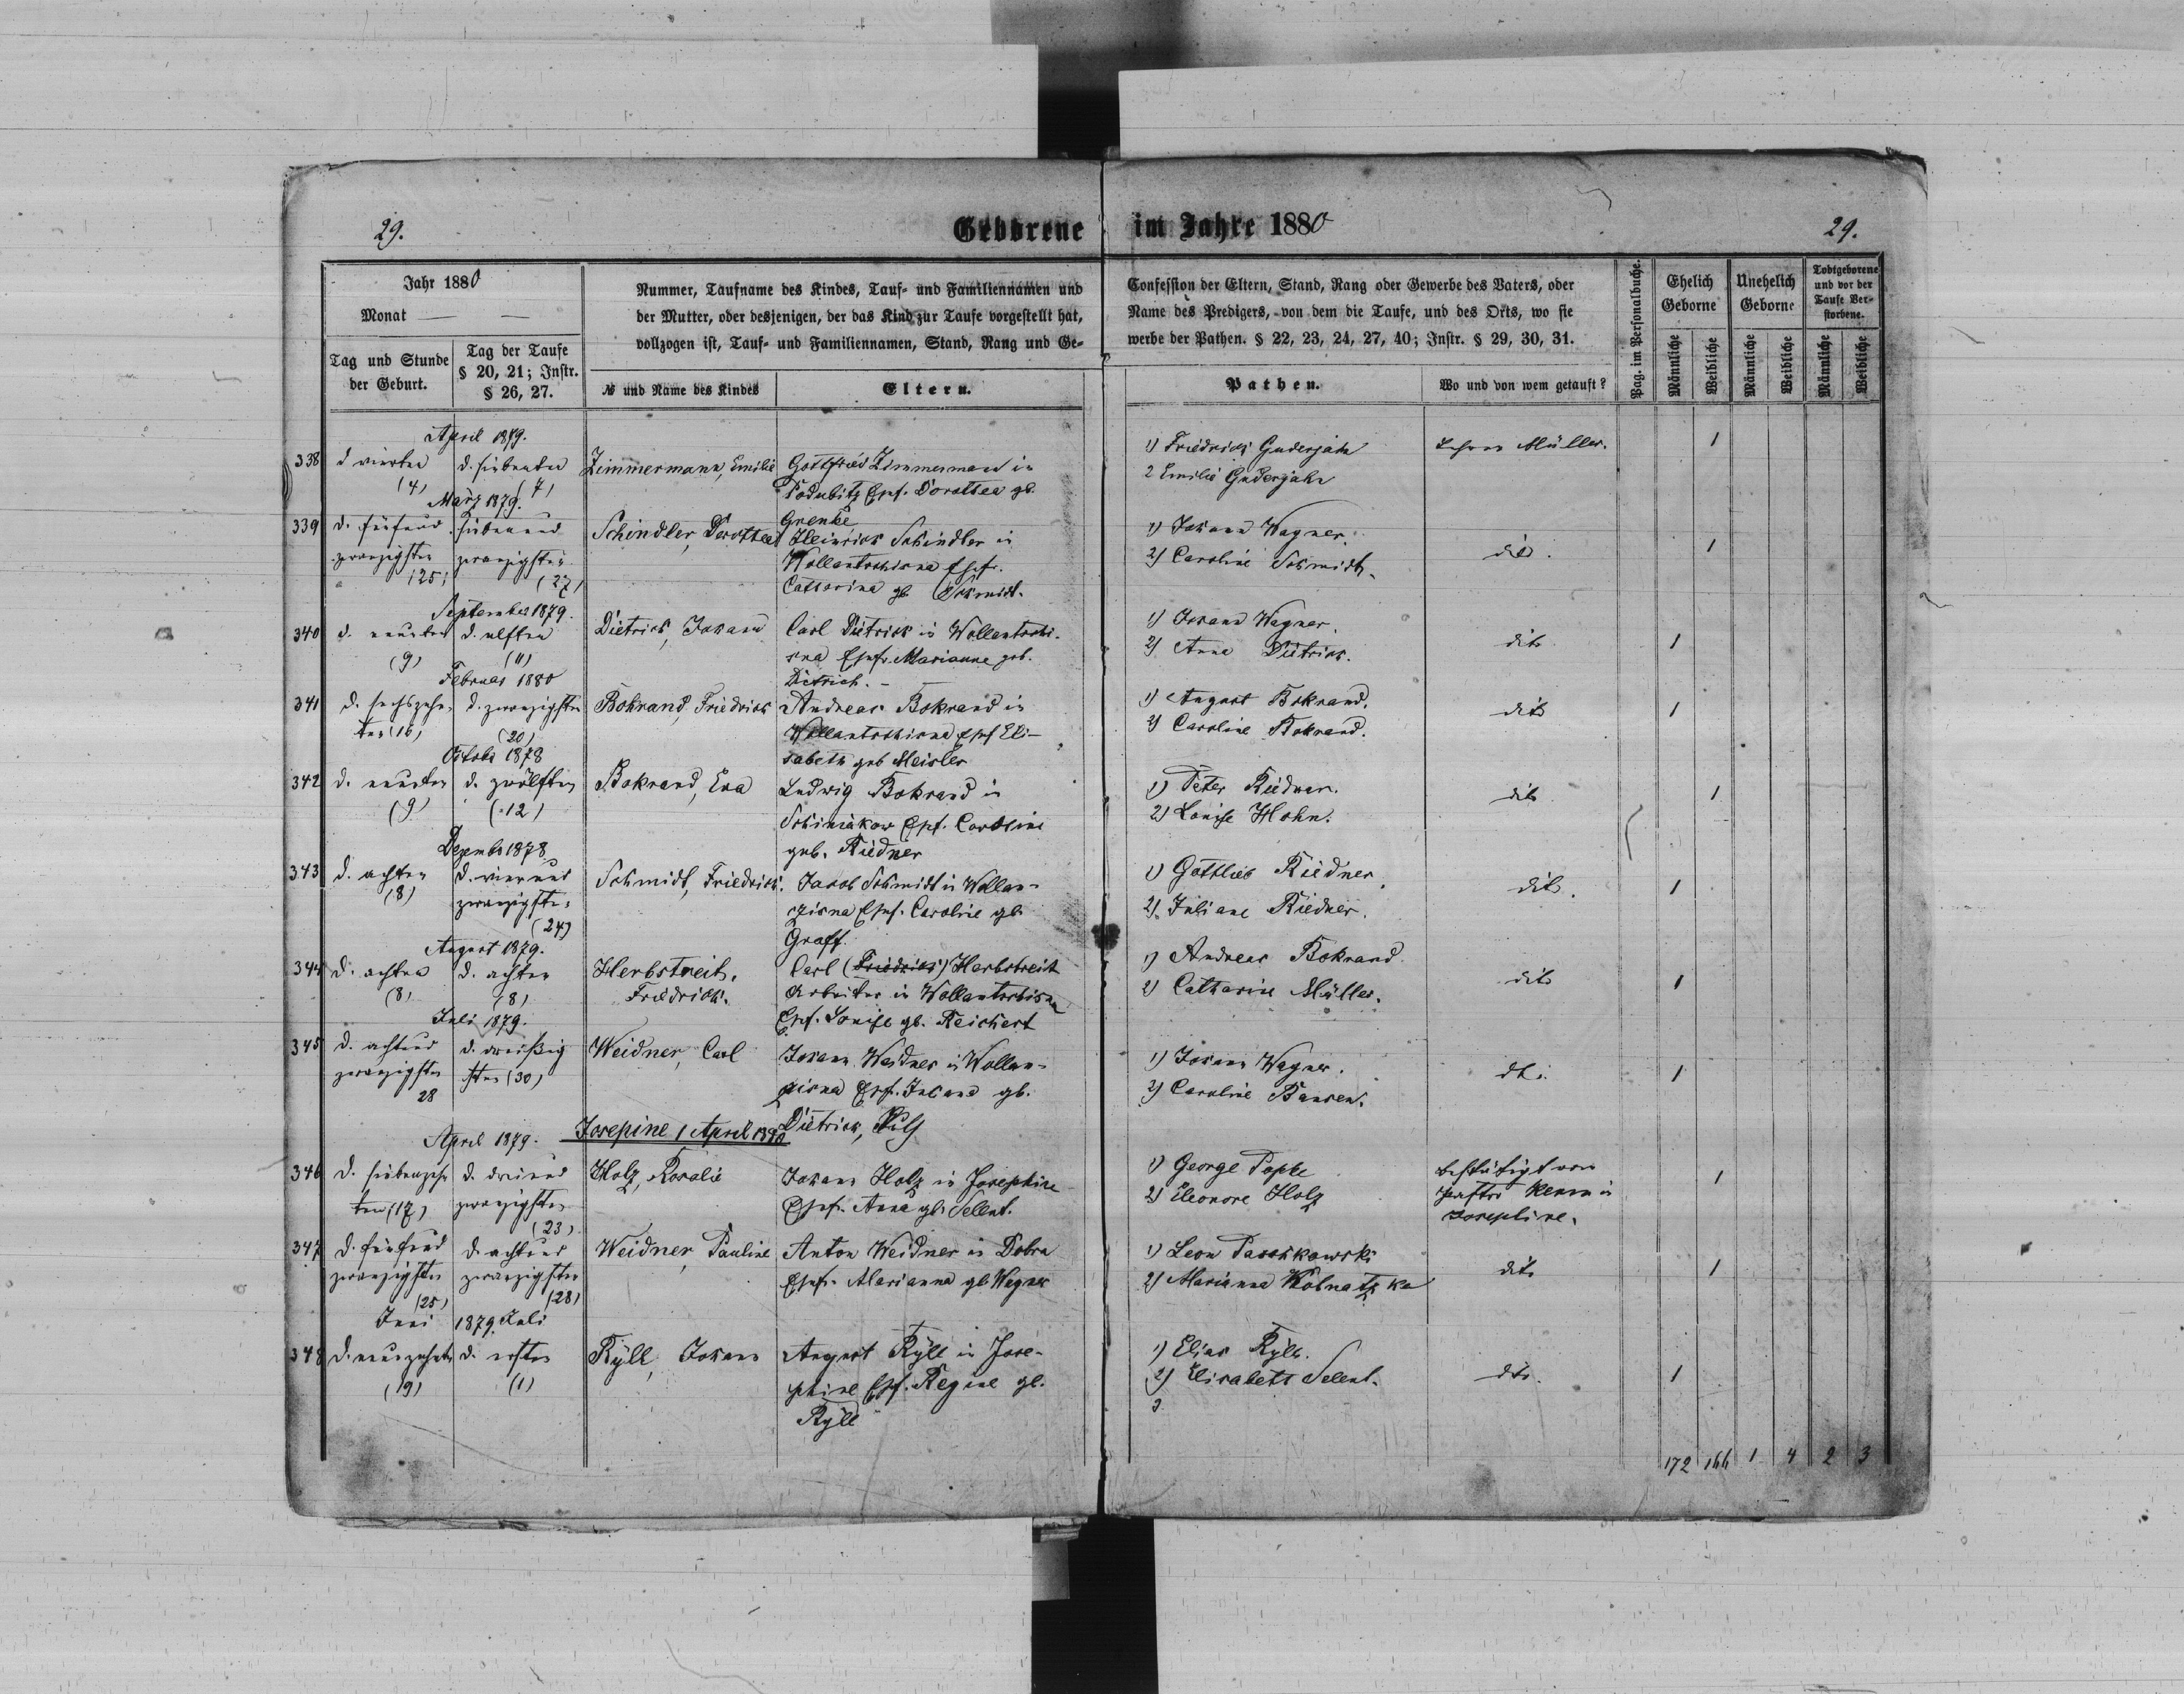 29.
Geborene im Jahre 1880
29.
Jahr 1880
Monat — —
Tag und Stunde der Geburt.
Tag der Taufe § 20, 21; Instr. § 26, 27.
Nummer, Taufname des Kindes, Tauf- und Familiennamen und
der Mutter, oder desjenigen, der das Kind zur Taufe vorgestellt hat,
vollzogen ist, Tauf- und Familiennamen, Stand, Rang und Ge-
№ und Name des Kindes
Eltern.
Confession der Eltern, Stand, Rang oder Gewerbe des Vaters, oder
Name des Predigers, von dem die Taufe, und des Orts, wo sie
werbe der Pathen. § 22, 23, 24, 27, 40; Instr. § 29, 30, 31.
Pathen.
Wo und von wem getauft?
Pag. im Personalbuche.
Ehelich Geborne
Unehelich Geborne
Todtgeborene und vor der Taufe Verstorbene.
Männliche
Weibliche
Männliche
Weibliche
Männliche
Weibliche
April 1879.
338 d vierten (4)
d. siebenten (7)
Zimmermann, Emilie
Gottfried Zimmermann in
Podubitz Ehef. Dorothea gb.
Grenke
1) Friedrich Guderjahn
2 Emilie Guderjahn
Lehrer Müller.
1
März 1879.
339 d. fünfund
zwanzigsten
(25)
siebenund
zwanzigsten
(27)
Schindler, Dorothea
Heinrich Schindler in
Wollantschisna Ehefr.
Catharina gb Schmidt.
1) Johann Wagner.
2) Caroline Schmidt.
dito.
1
September 1879.
340 d. neunten
(9)
d. elften
(11)
Dietrich, Johann
Carl Dietrich in Wollantschi-
sna Ehefr. Marianne geb.
Dietrich. -
1) Johann Wagner.
2) Anna Dietrich.
dito
1
Februar 1880
341 d. sechszehn-
ten (16)
d. zwanzigsten
(20)
Bohrand, Friedrich
Andreas Bohrand in
Wollantschisna Ehef Eli-
sabeth geb Meisler
1) August Bohrand.
2) Caroline Bohrand.
dito
1
October 1878
342 d. neunten
(9)
d. zwölften
(12)
Bohrand, Eva
Ludwig Bohrand in
Schiniakow Ehef. Caroline
geb. Riedner
1) Peter Riedner.
2) Louise Hohn.
dito
1
Dezember 1878
343 d. achten
(8)
d. vierund
zwanzigsten
(24)
Schmidt, Friedrich.
Jacob Schmidt in Wollan-
zisna Ehef. Caroline gb.
Graff.
1) Gottlieb Riedner
2) Juliane Riedner.
dito.
1
August 1879.
344 d. achten
(8)
d. achten
(8)
Herbstreit.
Friedrich.
Carl (Friedrich) Herbstreit
Arbeiter in Wollantschisna
Ehef. Louise gb. Reichert
1) Andreas Bohrand
2) Catharine Müller.
dito
1
Juli 1879.
345 d. achtund
zwanzigsten
28
d. dreißig
sten (30)
Weidner, Carl
Johann Weidner in Wollan-
zisna Ehef. Juliana gb.
Dietrich,
1) Johann Wagner.
2) Caroline Bansen.
1
Josepine 1 April 1880
April 1879.
346 d. siebenzehn
ten (17)
d. dreiund
zwanzigsten
(23)
Holz, Rosalie
Johann Holz in Josephine
Ehef. Anna gb. Selent.
1) George Poppe
2) Eleonore Holz
bestätigt von
Josepline.
1
347 d. fünfund
zwanzigsten
(25)
d. achtund
zwanzigsten
(28)
Weidner, Pauline
Anton Weidner in Dobra
Ehef. Marianna gb Wagner
1) Leon Paschkowski
2) Marianna Wolnatzka
dito
1
Juni 1879 Juli
348 d. neunzehnte
(19)
d. ersten
(1)
Ryll, Johann
August Ryll in Jose-
phine Ehef. Regine gb.
Ryll
1) Elias Ryll.
2) Elisabeth Selent.
3
dto.
1
172 166 1 4 2 3